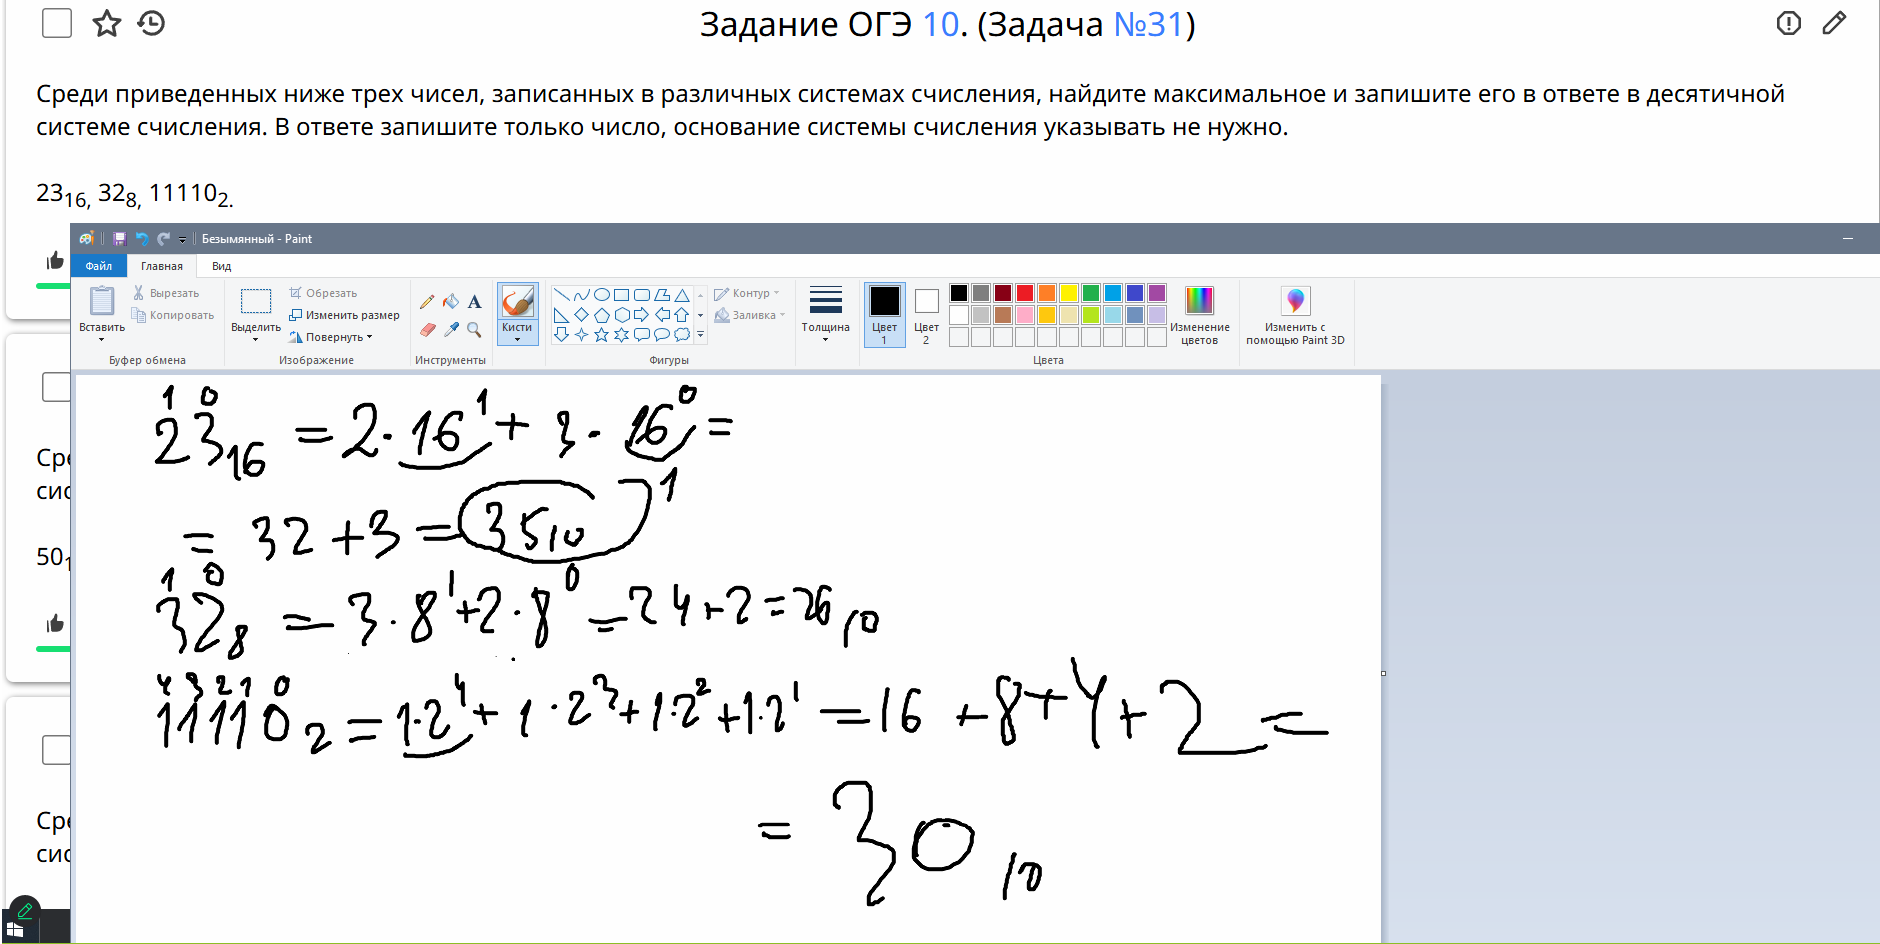 Задание ОГЭ 10. (Задача №31)
Среди приведенных ниже трех чисел, записанных в различных системах счисления, найдите максимальное и запишите его в ответе в десятичной
системе счисления. В ответе запишите только число, основание системы счисления указывать не нужно.
23₁₆, 32₈, 11110₂.
Безымянный - Paint
Файл Главная Вид
Вставить
Вырезать
Копировать
Буфер обмена
Выделить
Обрезать
Изменить размер
Повернуть
Изображение
Инструменты
Кисти
Контур
Заливка
Фигуры
Толщина
Цвет
1
Цвет
2
Изменение
цветов
Цвета
Изменить с
помощью Paint 3D
1 0
23₁₆ = 2·16¹ + 3·16⁰ =
= 32 + 3 = 35₁₀ 1
1 0
32₈ = 3·8¹+2·8⁰ = 24+2=26₁₀
4 3 2 1 0
11110₂ = 1·2⁴ + 1·2³ + 1·2² + 1·2¹ = 16 + 8 + 4 + 2 =
= 30₁₀
Сре
сис
50₁
Сре
сис